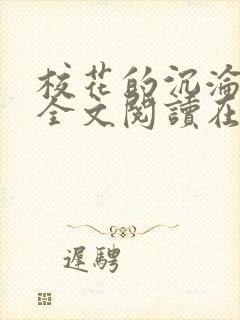 校花的沉淪
全文閱讀在
遲騁